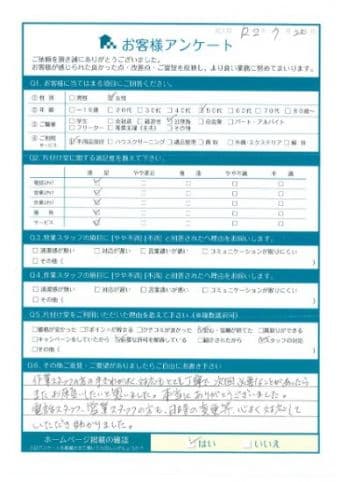 R2年7月20日
お客様アンケート
ご依頼を頂き誠にありがとうございました。
お客様が感じられた良かった点・改善点・ご要望も反映し、より良い業務に努めてまいります。
Q1. お客様に当てはまる項目にご回答ください。
①性別 □男性 ☑女性
②年齢 □~19代 □20代 □30代 □40代 ☑50代 □60代 □70代 □80歳~
③ご職業 □学生 □会社員 □経営者 □公務員 □自営業 □パート・アルバイト
□フリーター □専業主婦(主夫) □その他
④ご利用サービス ☑不用品回収 □ハウスクリーニング □遺品整理 □買取 □外構・エクステリア □解体
Q2. 片付け堂に関する満足度を教えて下さい。
満足 やや満足 普通 やや不満 不満
サービス
Q3. 営業スタッフの項目に[やや不満][不満]と回答された方へ理由をお伺いします。
□清潔感が無い □対応が遅い □言葉遣いが悪い □コミュニケーションが取りにくい
□その他( )
Q4. 作業スタッフの項目に[やや不満][不満]と回答された方へ理由をお伺いします。
□清潔感が無い □対応が遅い □言葉遣いが悪い □コミュニケーションが取りにくい
□その他( )
Q5. 片付け堂をご利用いただいた理由を教えて下さい。(複数選択可)
□価格が安かった □Tポイントが貯まる □クチコミが良かった □買取りができる
□キャンペーンをしていたから □紹介されたから ☑スタッフの対応
□その他( )
Q6. その他ご意見・ご要望がありましたらご自由にお書き下さい
作業スタッフの方の手ぎわが良く、対応もとても丁寧で、次回必要なことがあったら
またお願いしたいと思いました。本当にありがとうございました。
電話スタッフ、営業スタッフの方も、日時の変更等、心よく対応して
いただき助かりました。
ホームページ掲載の確認 ☑はい □いいえ